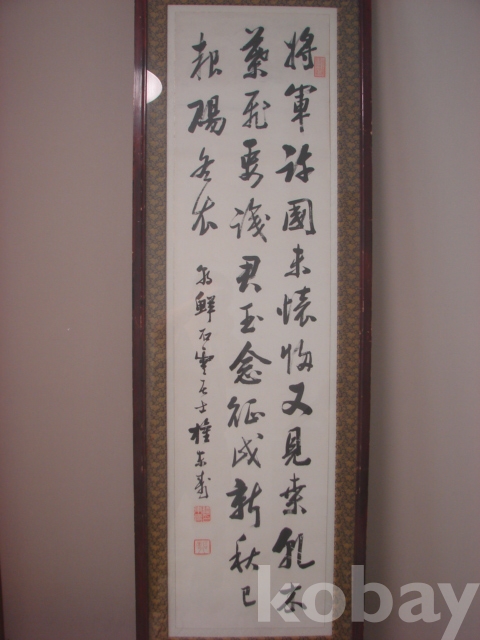 將軍許國未懷歸又見桑乾木
葉飛要識君王念征戍新秋已
報賜冬衣
朝鮮石雲居士權東壽
kobay